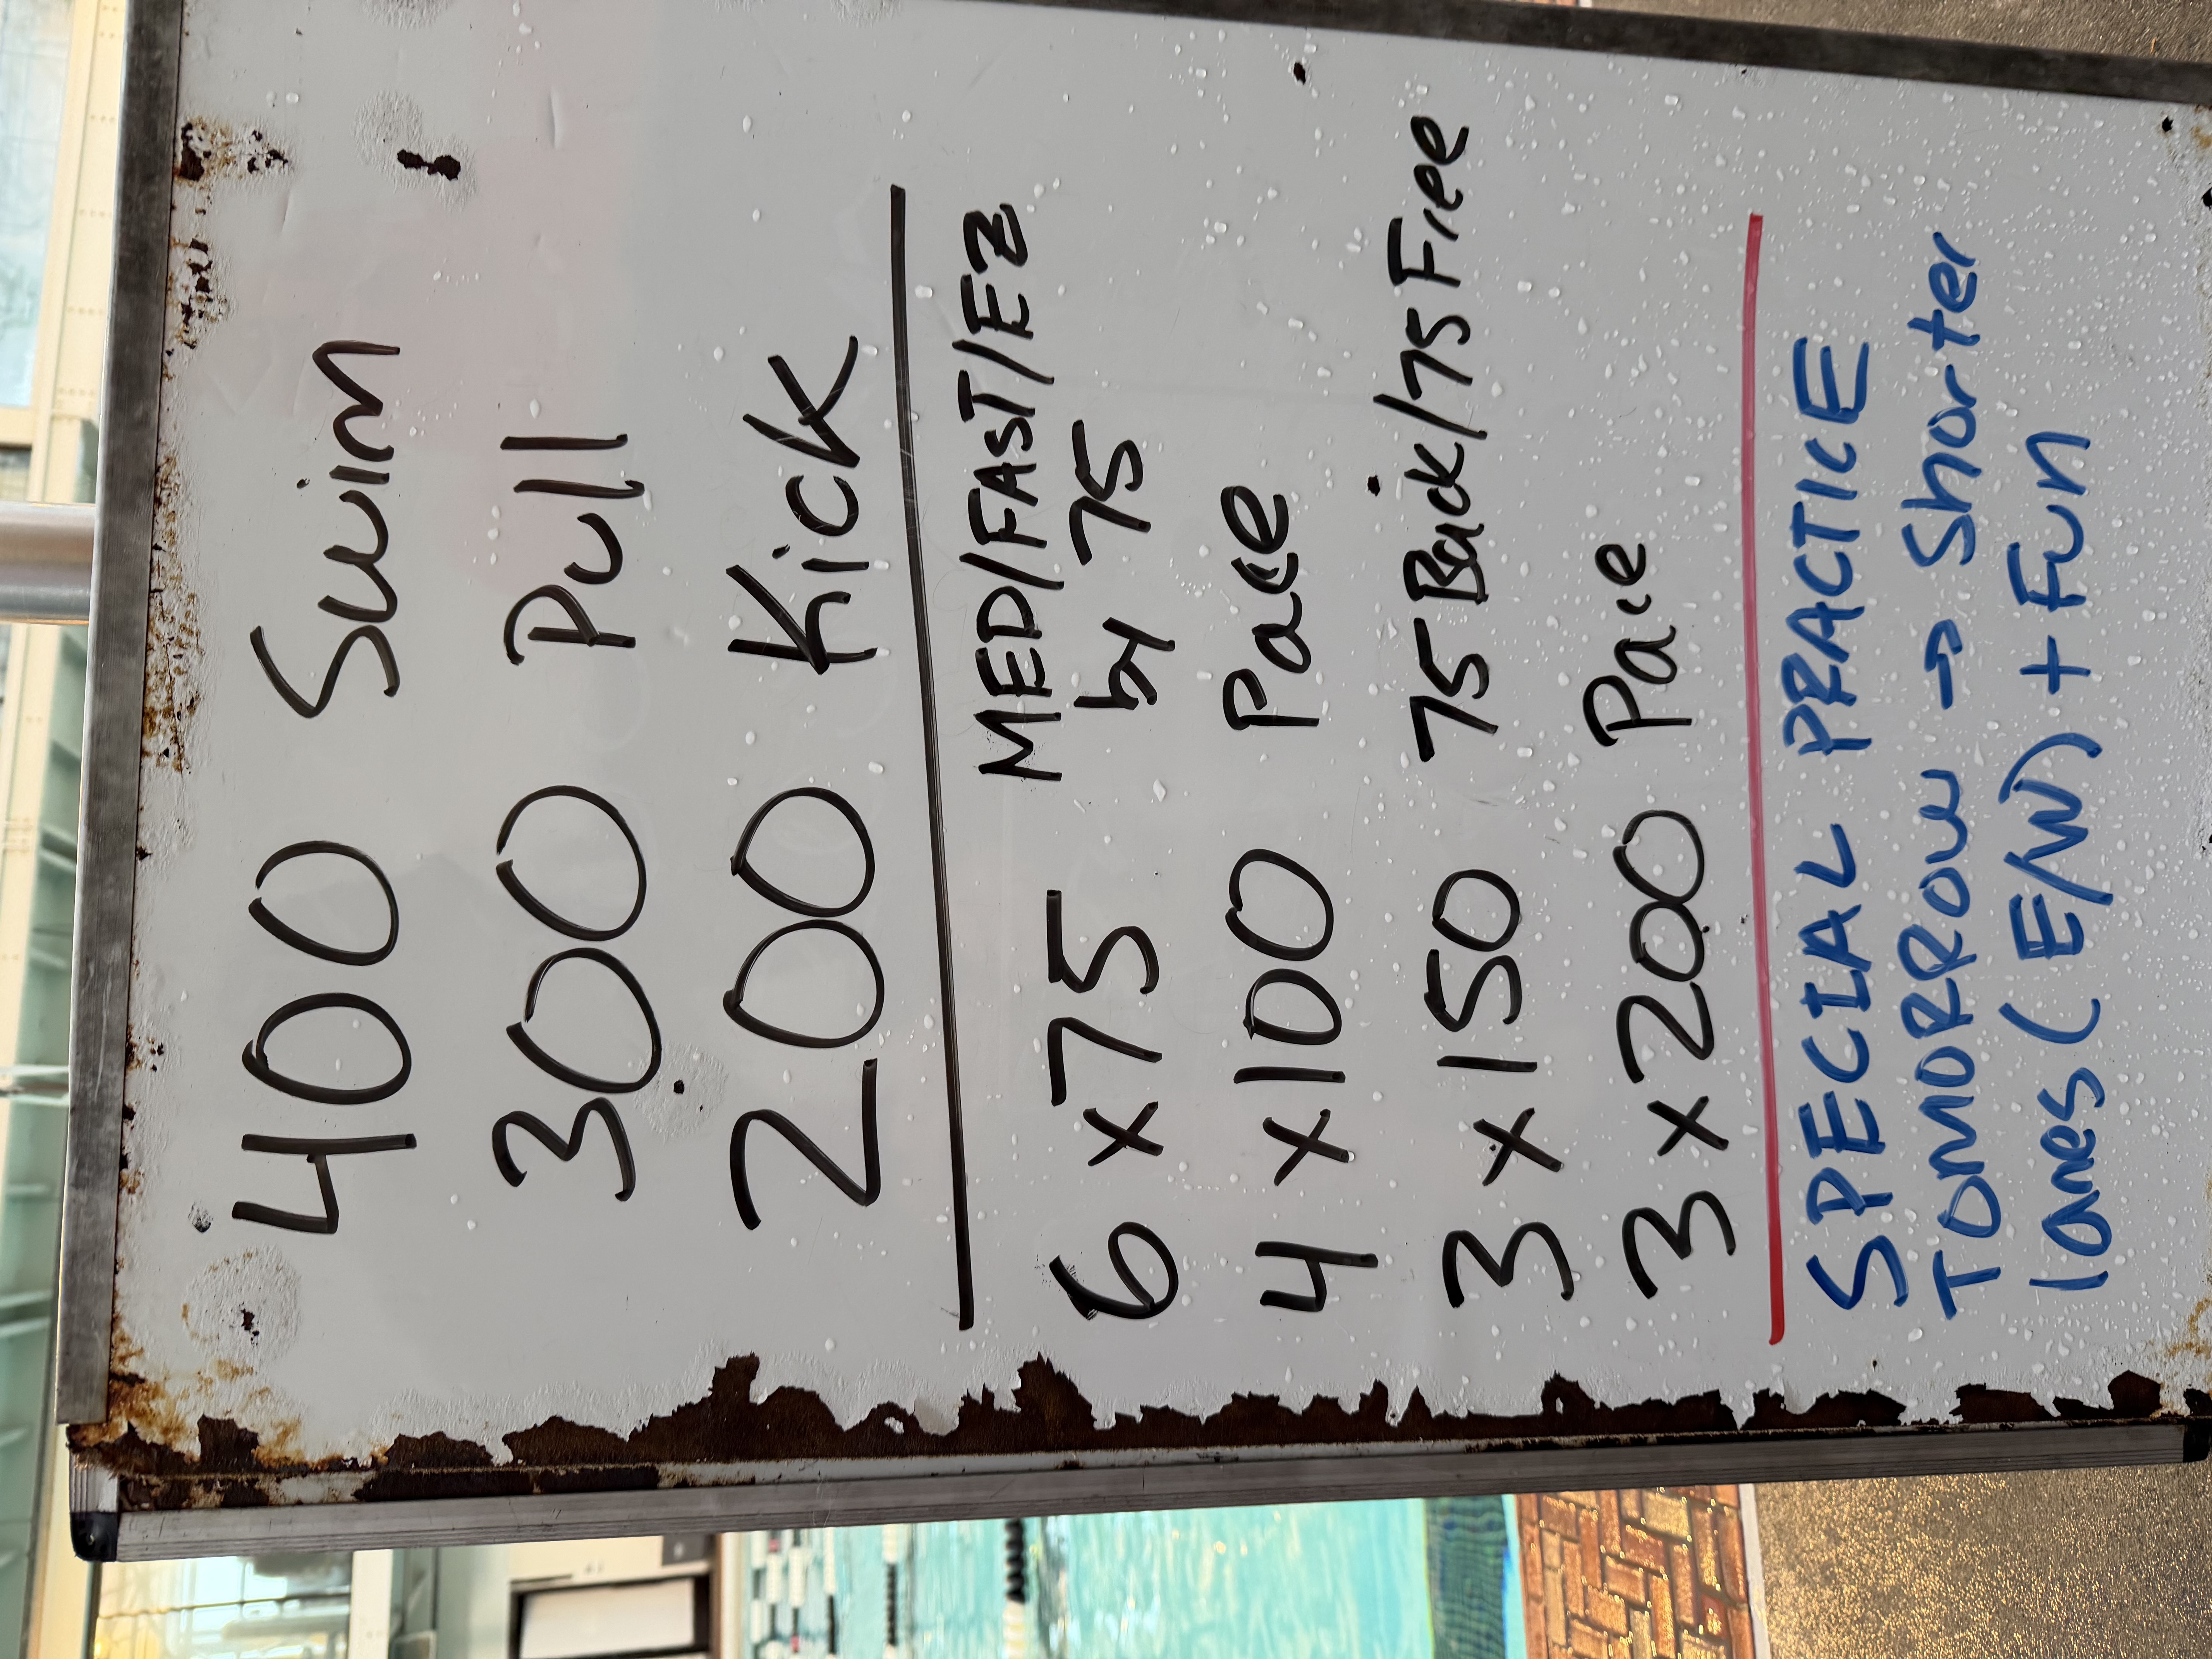 400 Swim
300 Pull
200 Kick
6 x 75 MED/FAST/EZ
by 75
4 x 100 Pace
3 x 150 75 Back/75 Free
3 x 200 Pace
SPECIAL PRACTICE
TOMORROW → Shorter
lanes (E/W) + Fun